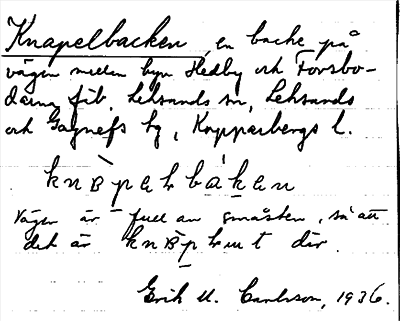 Knapelbacken, en backe på
vägen mellan byn Hedby och Forsbo-
darna fäb., Leksands sn, Leksands
och Gagnefs tg, Kopparbergs l.
knɒ̀pəlbàkən
Vägen är full av småsten, så att
det är där.
Erik M. Carlsson, 1936.